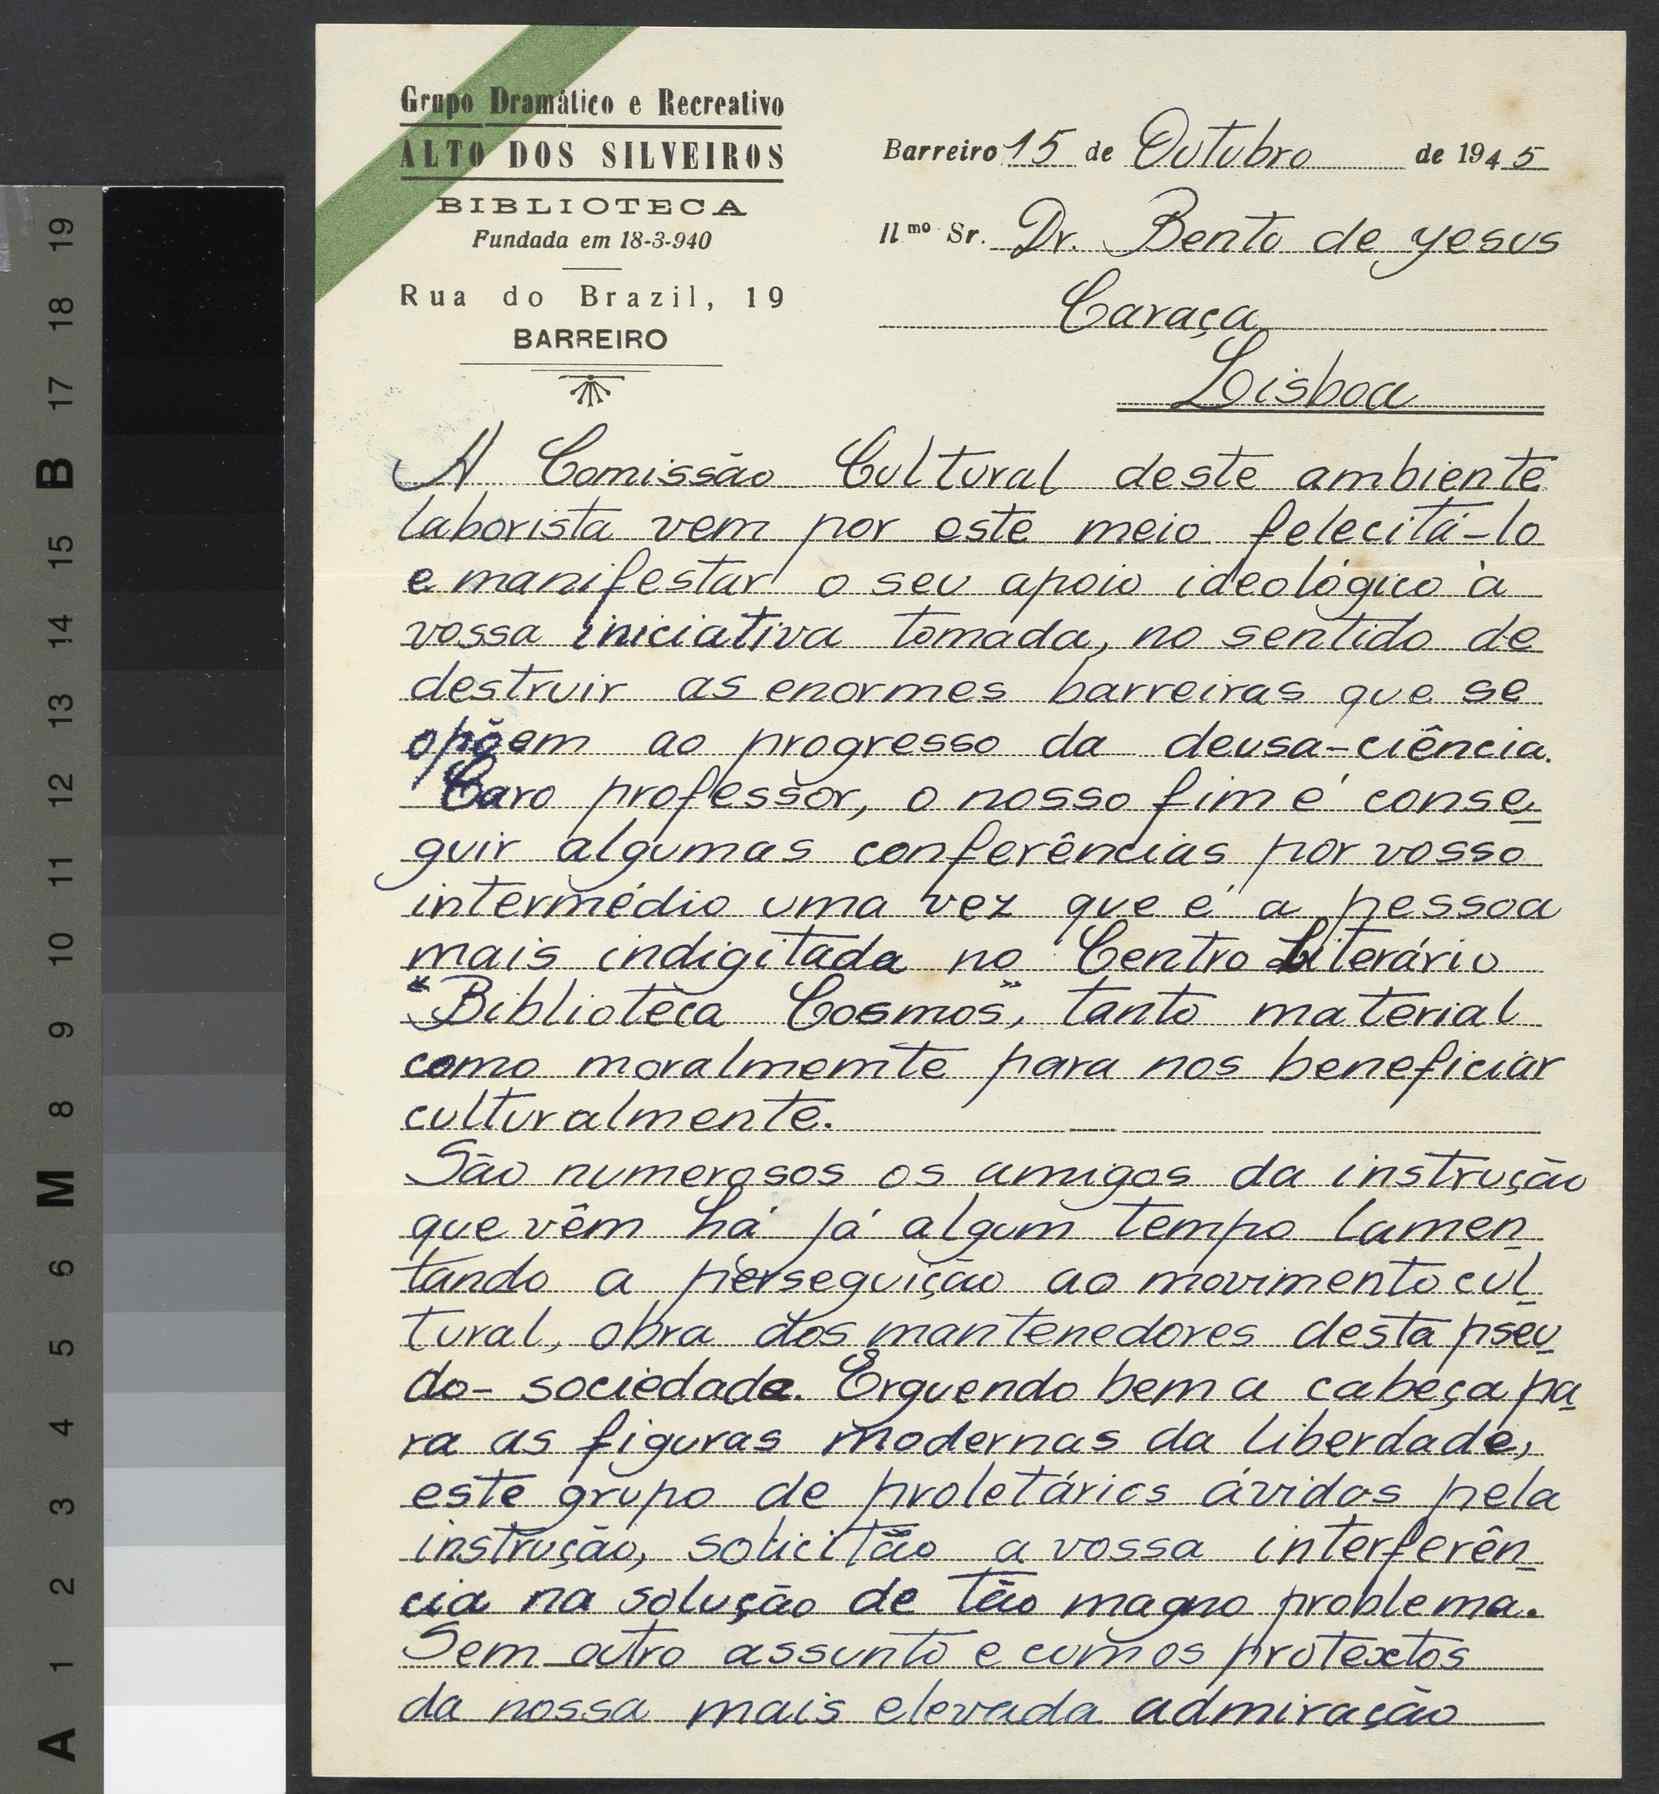 Grupo Dramático e Recreativo
ALTO DOS SILVEIROS
BIBLIOTECA
Fundada em 18-3-940
Rua do Brazil, 19
BARREIRO
Barreiro 15 de Outubro de 1945
Ilmo Sr. Dr. Bento de yesus
Caraça
Lisboa
A Comissão Cultural deste ambiente
laborista vem por este meio felecitá-lo
e manifestar o seu apoio ideológico à
vossa iniciativa tomada, no sentido de
destruir as enormes barreiras que se
opõem ao progresso da deusa-ciência.
Caro professor, o nosso fim é conse
guir algumas conferências por vosso
intermédio uma vez que é a pessoa
mais indigitada no Centro Literário
"Biblioteca Cosmos", tanto material
como moralmemte para nos beneficiar
culturalmente.
São numerosos os amigos da instrução
que vêm há já algum tempo lamen
tando a perseguição ao movimento cul
tural, obra dos mantenedores desta pseu
do-sociedade. Erguendo bem a cabeça pa
ra as figuras modernas da liberdade,
este grupo de proletários ávidos pela
instrução, solicitão a vossa interferên
cia na solução de tão magno problema.
Sem outro assunto e com os protextos
da nossa mais elevada admiração
19
18
17
B
15
14
13
12
11
10
9
8
M
6
5
4
3
2
1
A